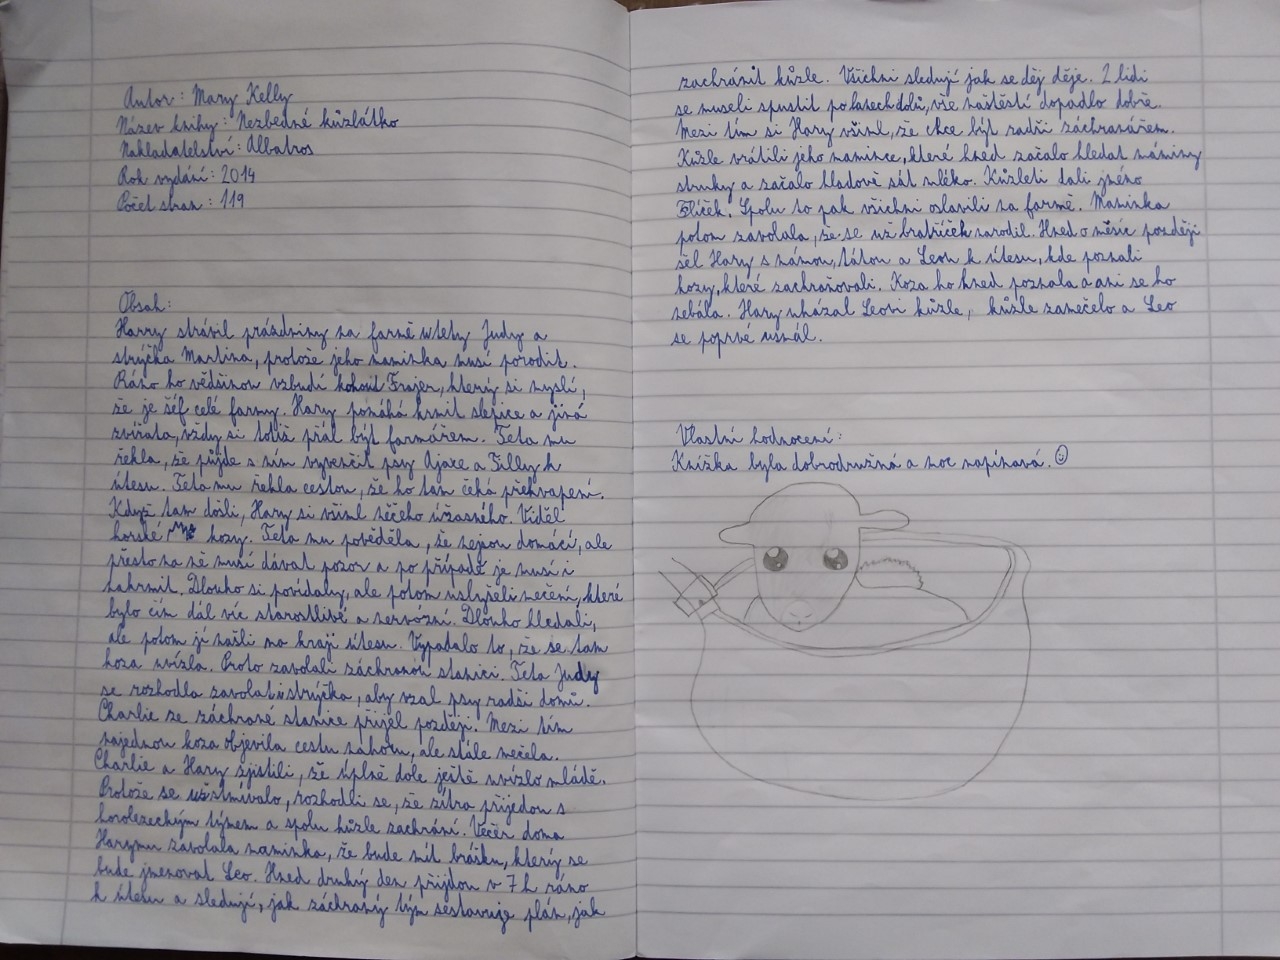 Autor: Mary Kelly
Název knihy: Nezbedné kůzlátko
Nakladatelství: Albatros
Rok vydání: 2014
Počet stran: 119
Obsah:
Harry strávil prázdniny na farmě u tety Judy a
strýčka Martina, protože jeho maminka musí porodit.
Ráno ho většinou vzbudí kohout Frajer, který si myslí,
že je šéf celé farmy. Hary pomáhá krmit slepice a jiná
zvířata, vždy si totiž přál být farmářem. Teta mu
řekla, že půjde s ním vyvenčit psy Ajaxe a Tilly k
útesu. Teta mu řekla cestou, že ho tam čeká překvapení.
Když tam došli, Hary si všiml něčeho úžasného. Viděl
horské kozy. Teta mu pověděla, že nejsou domácí, ale
přesto na ně musí dávat pozor a po případě je musí i
nakrmit. Dlouho si povídaly, ale potom uslyšeli mečení, které
bylo čím dál víc starostlivé a nervózní. Dlouho hledali,
ale potom jí našli na kraji útesu. Vypadalo to, že se tam
koza uvízla. Proto zavolali záchranou stanici. Teta Judy
se rozhodla zavolat i strýčka, aby vzal psy radši domů.
Charlie ze záchrané stanice přijel později. Mezi tím
najednou koza objevila cestu nahoru, ale stále mečela.
Charlie a Hary zjistili, že úplně dole ještě uvízlo mládě.
Protože se už stmívalo, rozhodli se, že zítra přijedou s
horolezeckým týmem a spolu kůzle zachrání. Večer doma
Harymu zavolala maminka, že bude mít brášku, který se
bude jmenovat Leo. Hned druhý den přijdou v 7 h ráno
k útesu a sledují, jak záchraný tým sestavuje plán, jak
zachránit kůzle. Všichni sledují jak se děj děje. 2 lidi
se museli spustit po lanech dolů, vše naštěstí dopadlo dobře.
Mezi tím si Hary všiml, že chce být radši záchranářem.
Kůzle vrátili jeho mamince, které hned začalo hledat máminy
struky a začalo hladově sát mléko. Kůzleti dali jméno
Flíček. Spolu to pak všichni oslavili na farmě. Maminka
potom zavolala, že se už bratříček narodil. Hned o měsíc později
šel Hary s mámou, tátou a Leou k útesu, kde poznali
kozy, které zachraňovali. Koza ho hned poznala a ani se ho
nebála. Hary ukázal Leovi kůzle, kůzle zamečelo a Leo
se poprvé usmál.
Vlastní hodnocení:
Knížka byla dobrodružná a moc napínavá. ☺